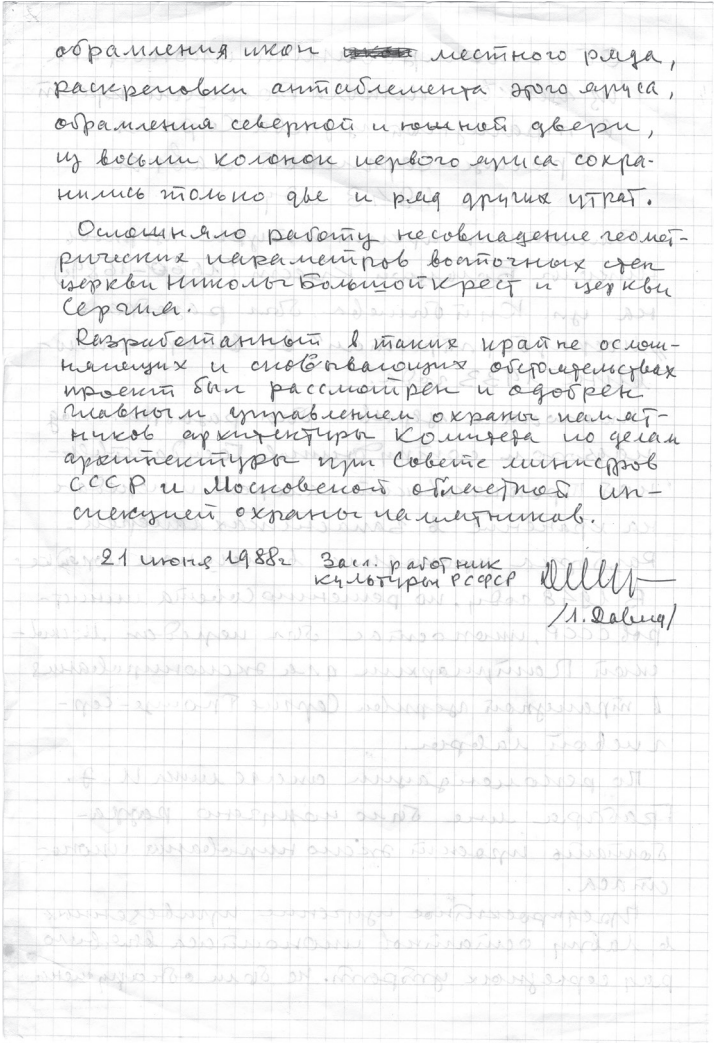 обрамления икон местного ряда,
раскреповки антаблемента этого яруса,
обрамления северной и южной двери,
из восьми колонок первого яруса сохра-
нились только две и ряд других утрат.
Осложняло работу несовпадение геомет-
рических параметров восточных стен
церкви Николы Большой Крест и церкви
Сергия.
Разработанный в таких крайне ослож-
няющих и сковывающих обстоятельствах
проект был рассмотрен и одобрен
Главным управлением охраны памят-
ников архитектуры Комитета по делам
архитектуры при Совете министров
СССР и Московской областной ин-
спекцией охраны памятников.
21 июня 1988г Засл. работник
культуры РСФСР
/Л. Давид/